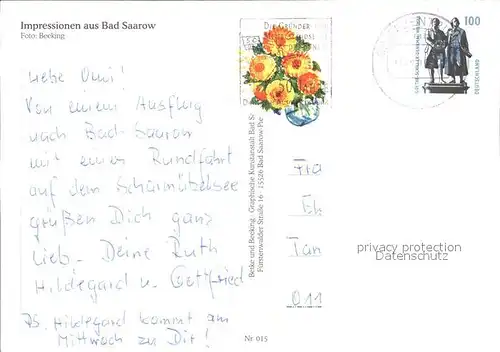 Impressionen aus Bad Saarow
Foto: Beeking
Liebe Omi!
Von einem Ausflug
nach Bad-Saarow
mit einer Rundfahrt
auf dem Scharmützelsee
grüßen Dich ganz
lieb - Deine Ruth
Hildegard u. Gottfried
PS. Hildegard kommt am
Mittwoch zu Dir!
DIE GRÜNDER
100
DEUTSCHLAND
Beeke und Beeking · Graphische Kunstanstalt Bad S
Fürstenwalder Straße 16 · 15526 Bad Saarow-Pie
Fra
Eh
Tan
011
privacy protection
Datenschutz
Nr 015